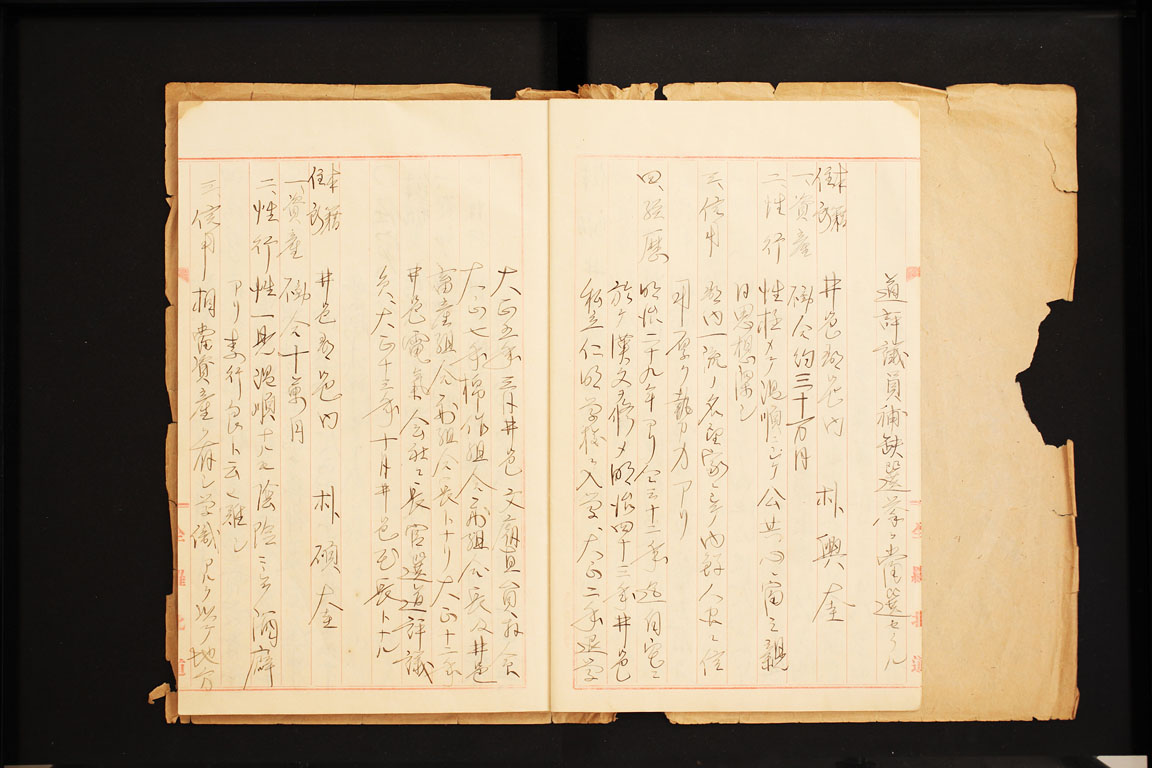 道評議員補缺選挙ニ當選セラル
本籍
住所 井邑郡邑内 朴興奎
一、資産 動合約三十万円
二、性行 性極メテ温順ニシテ公共心ニ富ミ親
日思想深シ
三、信用 郡内一流ノ名望家ニシテ内鮮人民ニ信
用厚ク勢力アリ
四、経歴 明治二十九年ヨリ仝三十二年迄自宅ニ
於テ漢文ヲ修メ明治四十三年井邑
私立仁明学校ニ入学、大正二年退学
大正五年三月井邑文廟直員被命
大正七年棉作組合副組合長及井邑
畜産組合副組合長トナリ大正十二年
井邑電気会社々長官選道評議
員、大正十三年十月井邑邑長トナル
本籍
住所 井邑郡邑内 朴碩奎
一、資産 動合十萬円
二、性行 性一見温順ナルモ陰険ニシテ酒癖
アリ素行良シト云ヒ難シ
三、信用 相當資産ヲ有シ学識アルヲ以テ地方
全羅北道
全羅北道